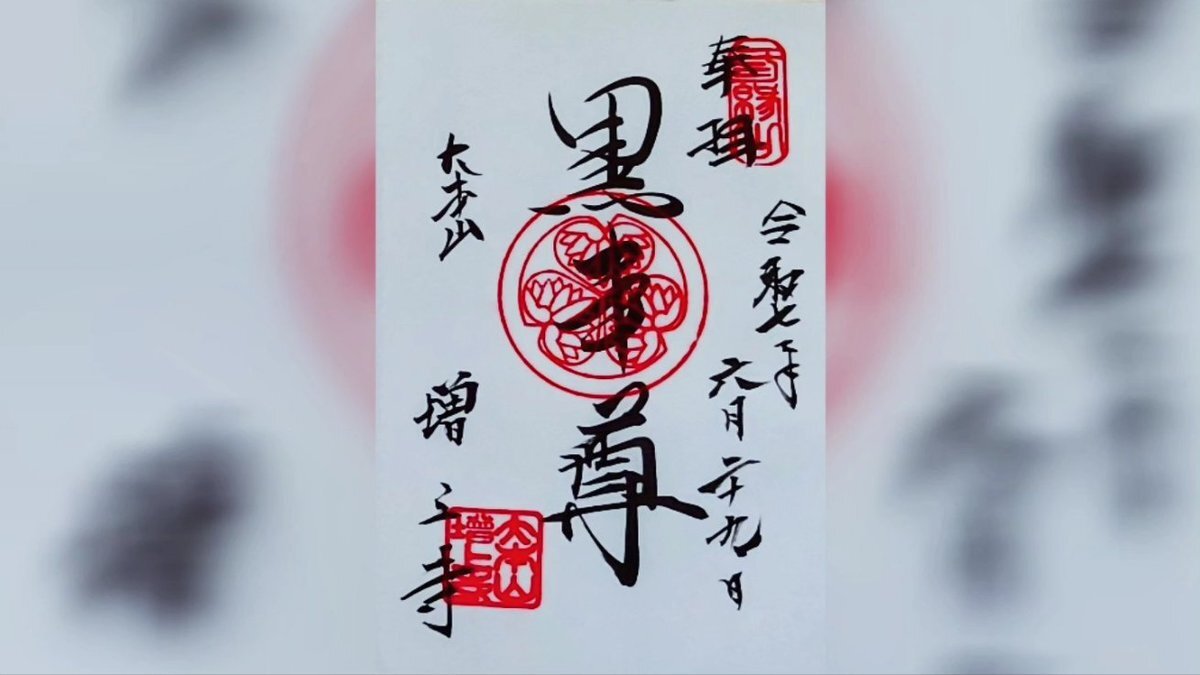 奉拝
令和七年
六月二十九日
黒本尊
大本山
増上寺
大本山
増上寺